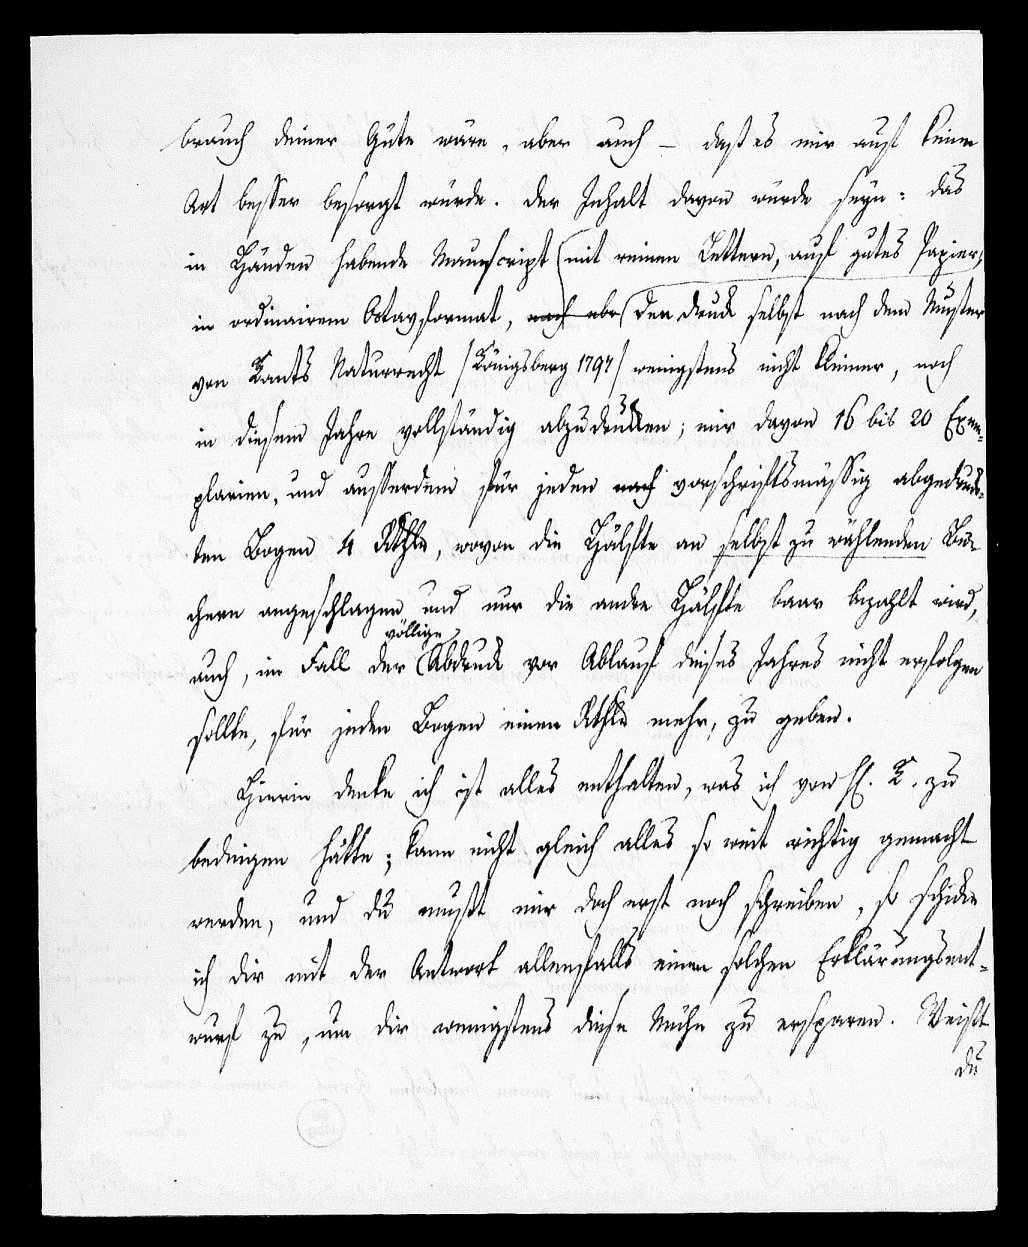 brauch deiner Güte wäre, aber auch – daß es mir auf keine
Art besser besorgt würde. Der Inhalt davon würde seyn: das
in Händen habende Manuscript (mit reinen Lettern, auf gutes Papier,
in ordinairem Octavformat, noch abe (den Druck selbst nach dem Muster
von Kants Naturrecht /Königsberg 1797/ wenigstens nicht kleiner, noch
in diesem Jahre vollständig abzudrucken; mir davon 16 bis 20 Exem-
plarien, und ausserdem für jeden nach vorschriftsmässig abgedruck-
ten Bogen 4 Rthlr, wovon die Hälfte an selbst zu wählenden Bü-
chern angeschlagen und nur die andre Hälfte baar bezahlt wird,
völlige
auch, im Fall der Abdruck vor Ablauf dieses Jahres nicht erfolgen
sollte, für jeden Bogen einen Rthlr mehr, zu geben.
Hierin denke ich ist alles enthalten, was ich von H. K. zu
bedingen hätte; kann nicht gleich alles so weit richtig gemacht
werden, und du mußt mir doch erst noch schreiben, so schicke
ich dir mit der Antwort allenfalls einen solchen Erklärungsent-
wurf zu, um dir wenigstens diese Mühe zu ersparen. Weißt
du